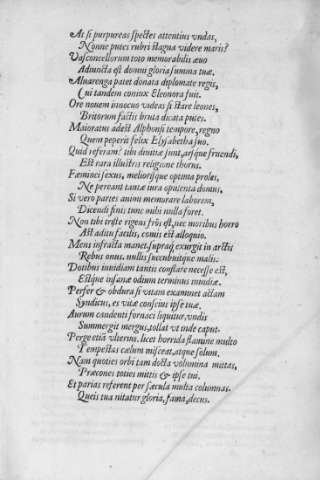 At si purpureas spectes attentius vndas,
Nónne putes rubri stagna videre maris?
Vasconcellorum toto memorabilis æuo
Adiuncta est domui gloria summa tuæ.
Aluarenga patet donata diplomate regis,
Cui tandem coniux Eleonora fuit.
Ore nouem innocuo videas si stare leones,
Britorum factis bruta dicata putes.
Maioratus adest Alphonsi tempore, regno
Quem peperit felix Elysabetha suo.
Quid referam? tibi diuitiæ sunt, arsque fruendi,
Est rara illustris religione thorus.
Fæminei sexus, meliorisque optima proles,
Ne pereant tantæ iura opulenta domus.
Si vero partes animi memorare laborem,
Dicendi finis tunc mihi nulla foret.
Non tibi triste rigens frōs est, nec moribus horro
Ast aditu facilis, comis est alloquio.
Mens infracta manet, supraq; exurgit in arctis
Rebus onus. nullis succubuitque malis.
Dotibus inuidiam tantis constare necesse est,
Estque insanæ odium terminus inuidiæ.
Perfer & obdura si vitam examinet actam
Syndicus, es vitæ conscius ipse tuæ.
Aurum candenti fornaci liquitur, vndis
Summergit mergus, tollat vt inde caput.
Perge etiā vlterius. licet horrida flamine multo
Tempestas cælum misceat, atque solum.
Nam quoties orbi tam docta volumina mittas,
Præcones toties mittis & ipse tui.
Et parias referent per sæcula multa columnas.
Queis tua nitatur gloria, fama, decus.